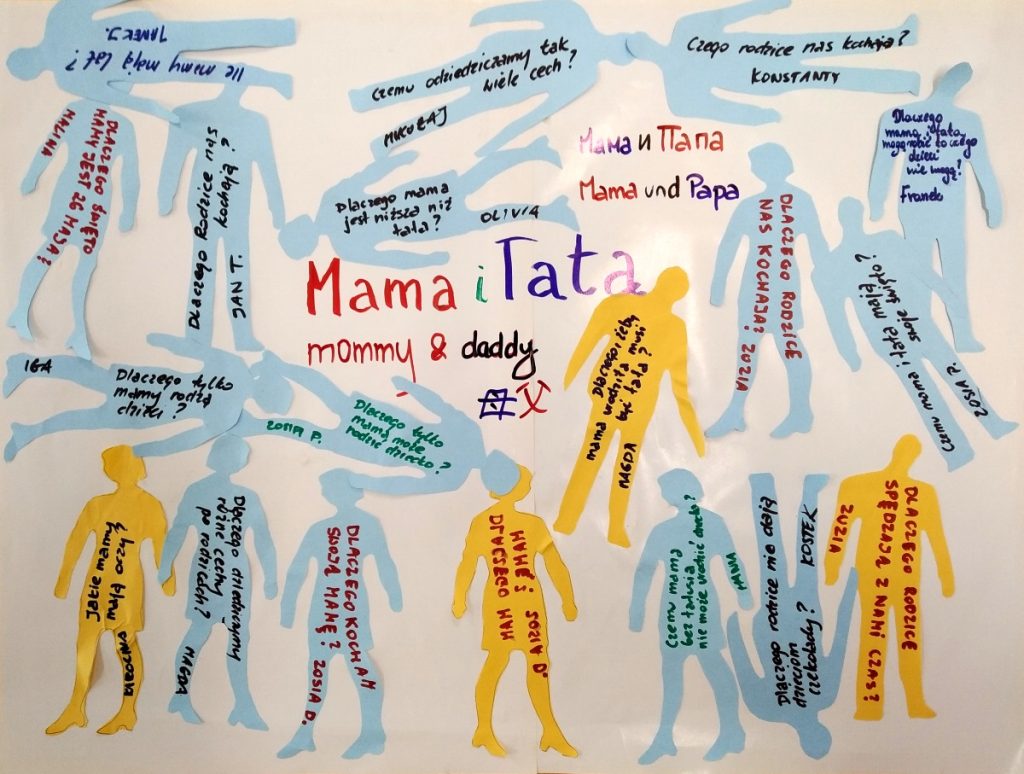 Ile mamy mają lat?
JANEK J.
Czemu odziedziczamy tak
wiele cech?
MIKOŁAJ
Czego rodzice nas kochają?
KONSTANTY
Dlaczego
mama i tata
mogą robić to czego
dzieci
nie mogą?
Franek
DLACZEGO ŚWIĘTO
MAMY JEST 26 MAJA?
MALINA
Dlaczego Rodzice nas
kochają?
JAN T.
Dlaczego mama
jest niższa niż
tata?
OLIWIA
Мама и Папа
Mama und Papa
Mama i Tata
mommy & daddy
DLACZEGO RODZICE
NAS KOCHAJĄ? ZUZIA
Czemu mama i tata mają
swoje święto?
ZOSIA P.
Dlaczego żeby
mama urodziła musi
być tata?
MAGDA
IGA
Dlaczego tylko
mamy rodzą
dzieci?
Dlaczego tylko
mama może
rodzić dziecko?
ZOSIA P.
Jakie mamy
mają oczy?
Dlaczego dziedziczymy
różne cechy
po rodzicach?
MAGDA
DLACZEGO KOCHAM
SWOJĄ MAMĘ? ZOSIA D.
DLACZEGO MAM
MAMĘ? ZOSIA D.
Czemu mama
bez tatusia
nie może urodzić dziecka?
HANNA
Dlaczego rodzice nie dają
dzieciom
czekolady?
KOSTEK
DLACZEGO RODZICE
SPĘDZAJĄ Z NAMI CZAS?
ZUZIA